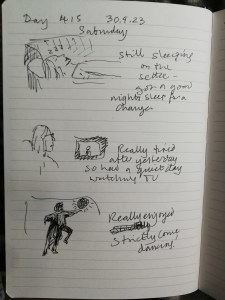 Day 415 30.9.23
Saturday
Still sleeping
on the
settee -
got a good
nights sleep for a
change
Really tired
after yesterday
so have a quiet day
watching TV
Really enjoyed
Strictly Come
dancing